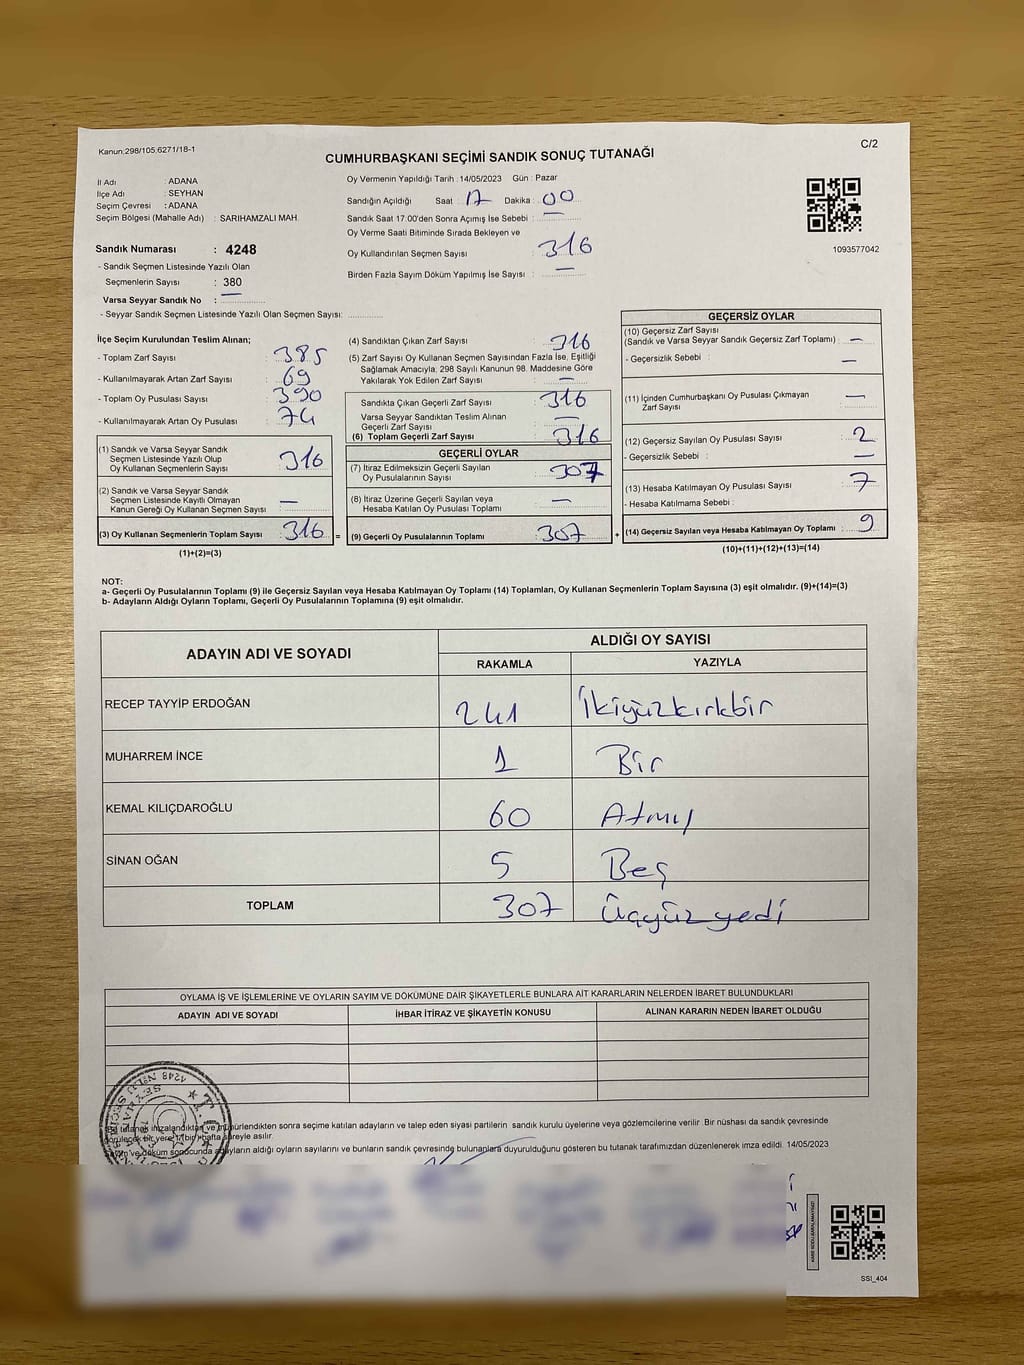 Kanun:298/105.6271/18-1
C/2
CUMHURBAŞKANI SEÇİMİ SANDIK SONUÇ TUTANAĞI
İl Adı : ADANA
İlçe Adı : SEYHAN
Seçim Çevresi : ADANA
Seçim Bölgesi (Mahalle Adı) : SARIHAMZALI MAH.
Sandık Numarası : 4248
- Sandık Seçmen Listesinde Yazılı Olan
Seçmenlerin Sayısı : 380
Varsa Seyyar Sandık No : —
- Seyyar Sandık Seçmen Listesinde Yazılı Olan Seçmen Sayısı:
Oy Vermenin Yapıldığı Tarih : 14/05/2023 Gün : Pazar
Sandığın Açıldığı Saat : 17 Dakika : 00
Sandık Saat 17.00'den Sonra Açımış İse Sebebi : —
Oy Verme Saati Bitiminde Sırada Bekleyen ve
Oy Kullandırılan Seçmen Sayısı : 316
Birden Fazla Sayım Döküm Yapılmış İse Sayısı : —
1093577042
İlçe Seçim Kurulundan Teslim Alınan;
- Toplam Zarf Sayısı : 385
- Kullanılmayarak Artan Zarf Sayısı : 69
- Toplam Oy Pusulası Sayısı : 390
- Kullanılmayarak Artan Oy Pusulası : 74
(1) Sandık ve Varsa Seyyar Sandık
Seçmen Listesinde Yazılı Olup
Oy Kullanan Seçmenlerin Sayısı : 316
(2) Sandık ve Varsa Seyyar Sandık
Seçmen Listesinde Kayıtlı Olmayan
Kanun Gereği Oy Kullanan Seçmen Sayısı : —
(3) Oy Kullanan Seçmenlerin Toplam Sayısı : 316 =
(1)+(2)=(3)
(4) Sandıktan Çıkan Zarf Sayısı : 316
(5) Zarf Sayısı Oy Kullanan Seçmen Sayısından Fazla İse, Eşitliği
Sağlamak Amacıyla; 298 Sayılı Kanunun 98. Maddesine Göre
Yakılarak Yok Edilen Zarf Sayısı : —
Sandıkta Çıkan Geçerli Zarf Sayısı : 316
Varsa Seyyar Sandıktan Teslim Alınan
Geçerli Zarf Sayısı : —
(6) Toplam Geçerli Zarf Sayısı : 316
GEÇERLİ OYLAR
(7) İtiraz Edilmeksizin Geçerli Sayılan
Oy Pusulalarının Sayısı : 307
(8) İtiraz Üzerine Geçerli Sayılan veya
Hesaba Katılan Oy Pusulası Toplamı : —
(9) Geçerli Oy Pusulalarının Toplamı : 307 +
GEÇERSİZ OYLAR
(10) Geçersiz Zarf Sayısı
(Sandık ve Varsa Seyyar Sandık Geçersiz Zarf Toplamı) : —
- Geçersizlik Sebebi : —
(11) İçinden Cumhurbaşkanı Oy Pusulası Çıkmayan
Zarf Sayısı : —
(12) Geçersiz Sayılan Oy Pusulası Sayısı : 2
- Geçersizlik Sebebi : —
(13) Hesaba Katılmayan Oy Pusulası Sayısı : 7
- Hesaba Katılmama Sebebi :
(14) Geçersiz Sayılan veya Hesaba Katılmayan Oy Toplamı : 9
(10)+(11)+(12)+(13)=(14)
NOT:
a- Geçerli Oy Pusulalarının Toplamı (9) ile Geçersiz Sayılan veya Hesaba Katılmayan Oy Toplamı (14) Toplamları, Oy Kullanan Seçmenlerin Toplam Sayısına (3) eşit olmalıdır. (9)+(14)=(3)
b- Adayların Aldığı Oyların Toplamı, Geçerli Oy Pusulalarının Toplamına (9) eşit olmalıdır.
ADAYIN ADI VE SOYADI
ALDIĞI OY SAYISI
RAKAMLA YAZIYLA
RECEP TAYYİP ERDOĞAN 241 İkiyüzkırkbir
MUHARREM İNCE 1 Bir
KEMAL KILIÇDAROĞLU 60 Atmış
SİNAN OĞAN 5 Beş
TOPLAM 307 Üçyüz yedi
OYLAMA İŞ VE İŞLEMLERİNE VE OYLARIN SAYIM VE DÖKÜMÜNE DAİR ŞİKAYETLERLE BUNLARA AİT KARARLARIN NELERDEN İBARET BULUNDUKLARI
ADAYIN ADI VE SOYADI İHBAR İTİRAZ VE ŞİKAYETİN KONUSU ALINAN KARARIN NEDEN İBARET OLDUĞU
tutanak imzalandıktan ve mühürlendikten sonra seçime katılan adayların ve talep eden siyasi partilerin sandık kurulu üyelerine veya gözlemcilerine verilir. Bir nüshası da sandık çevresinde
görülecek bir yere 1 (bir) hafta süreyle asılır.
Sayım ve döküm sonucunda adayların aldığı oyların sayılarını ve bunların sandık çevresinde bulunanlara duyurulduğunu gösteren bu tutanak tarafımızdan düzenlenerek imza edildi. 14/05/2023
SSI_404